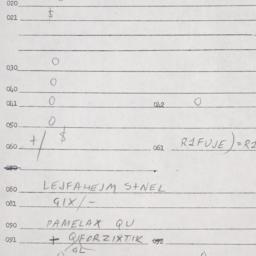 020
021 $
030 O
040 O
041 O 042 O
050 O
060 +/ $ 061 R1FUJE)=R1
080 LEJFAHEJM S+NEL
081 GIX/-
090 PAMELAX QU
091 + QIFORZIXTIK